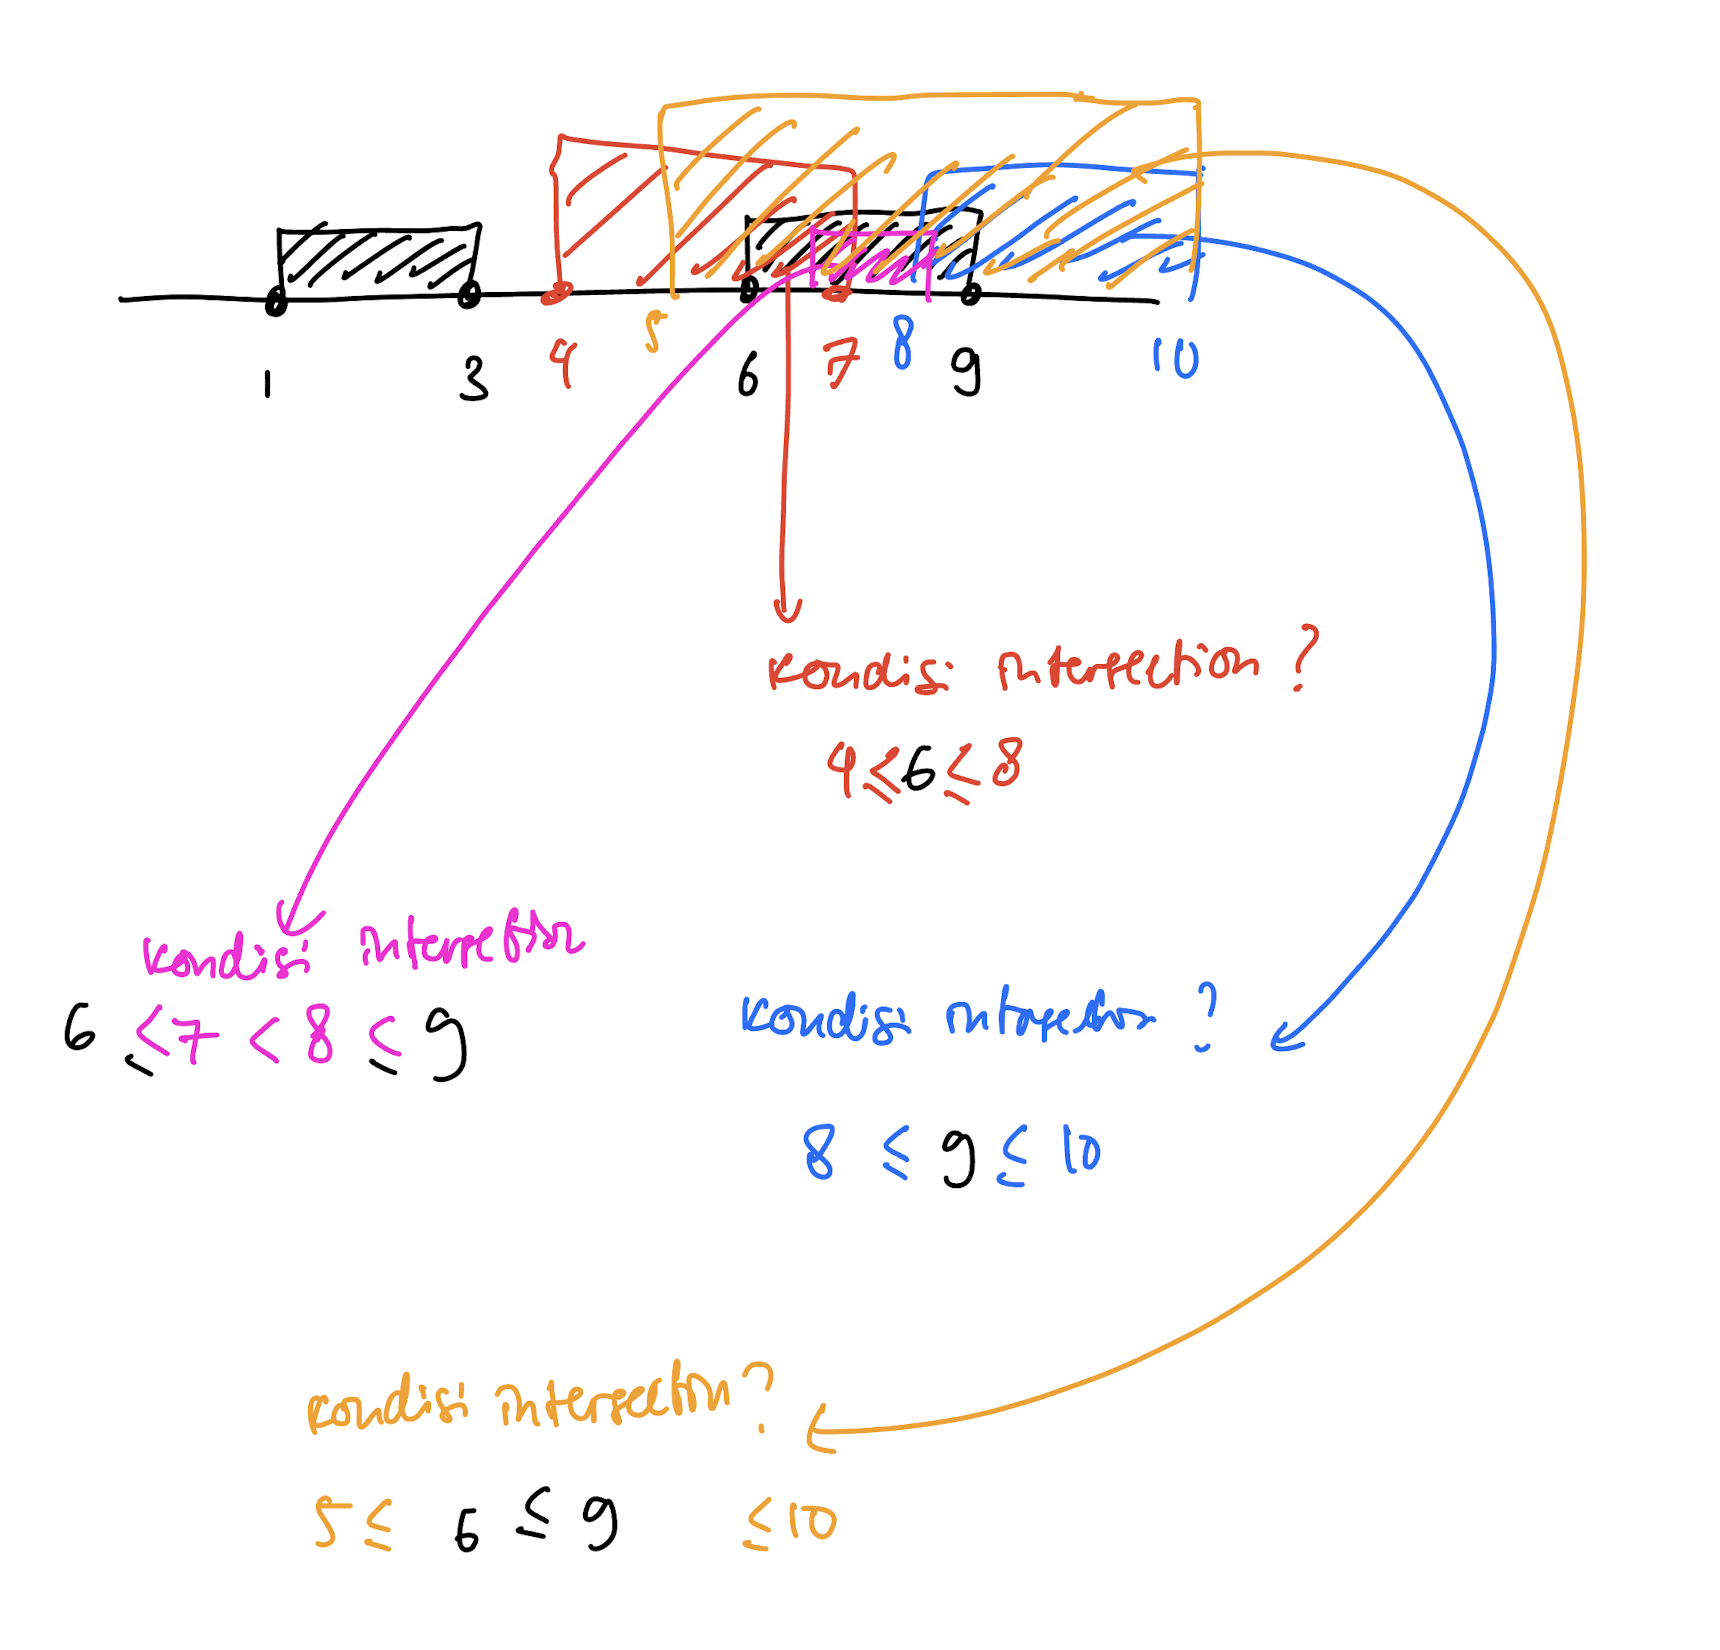 1 3 4 5 6 7 8 9 10
kondisi intersection ?
4 ≤ 6 ≤ 8
kondisi intersection
6 ≤ 7 < 8 ≤ 9
kondisi intersection ?
8 ≤ 9 ≤ 10
kondisi intersection ?
5 ≤ 6 ≤ 9 ≤ 10